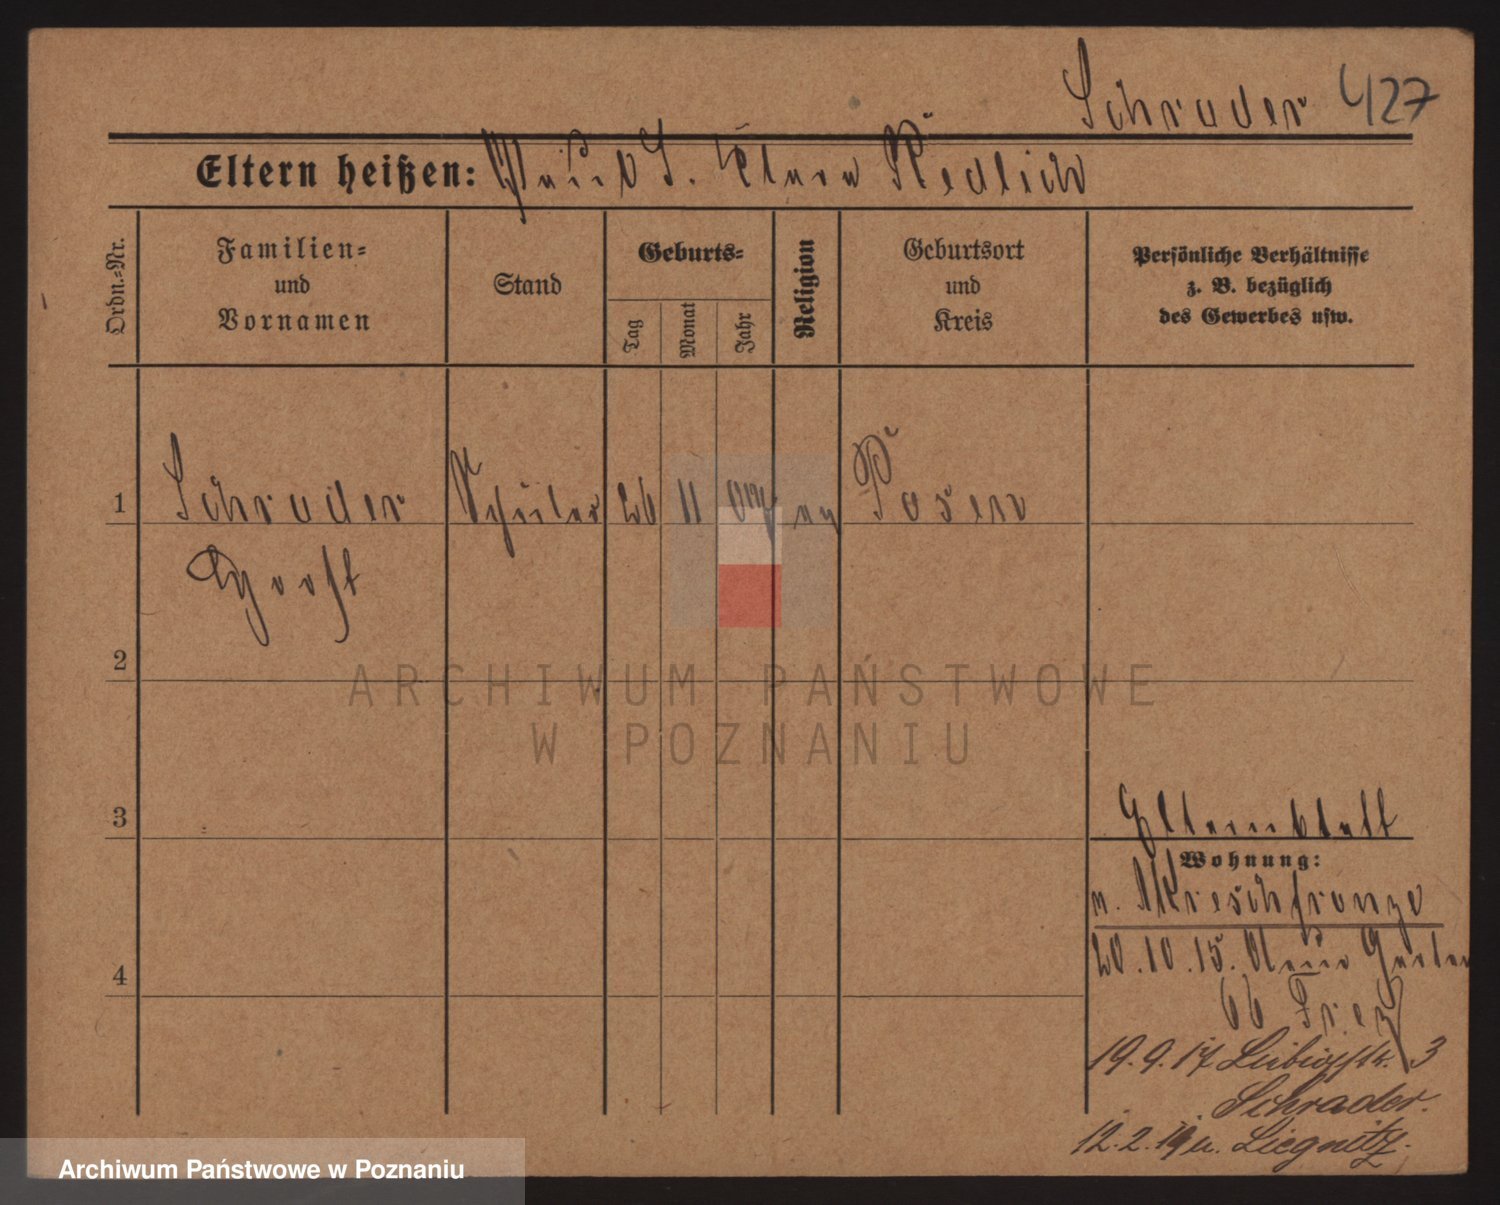 Schrader 427
Eltern heißen: Paul S. Clara Redlich
Ordn.-Nr.
Familien-
und
Vornamen
Stand
Geburts-
Tag
Monat
Jahr
Religion
Geburtsort
und
Kreis
Persönliche Verhältnisse
z. B. bezüglich
des Gewerbes usw.
1 Schrader Schüler 26 11 ev Posen
Horst
2
ARCHIWUM PAŃSTWOWE
W POZNANIU
3
Elternblatt
Wohnung:
n. Kreschfronze
4
20.10.15. Neue Garten
66
19.9.17 Liebigstr. 3
Schrader.
12.2.19 n. Liegnitz.
Archiwum Państwowe w Poznaniu